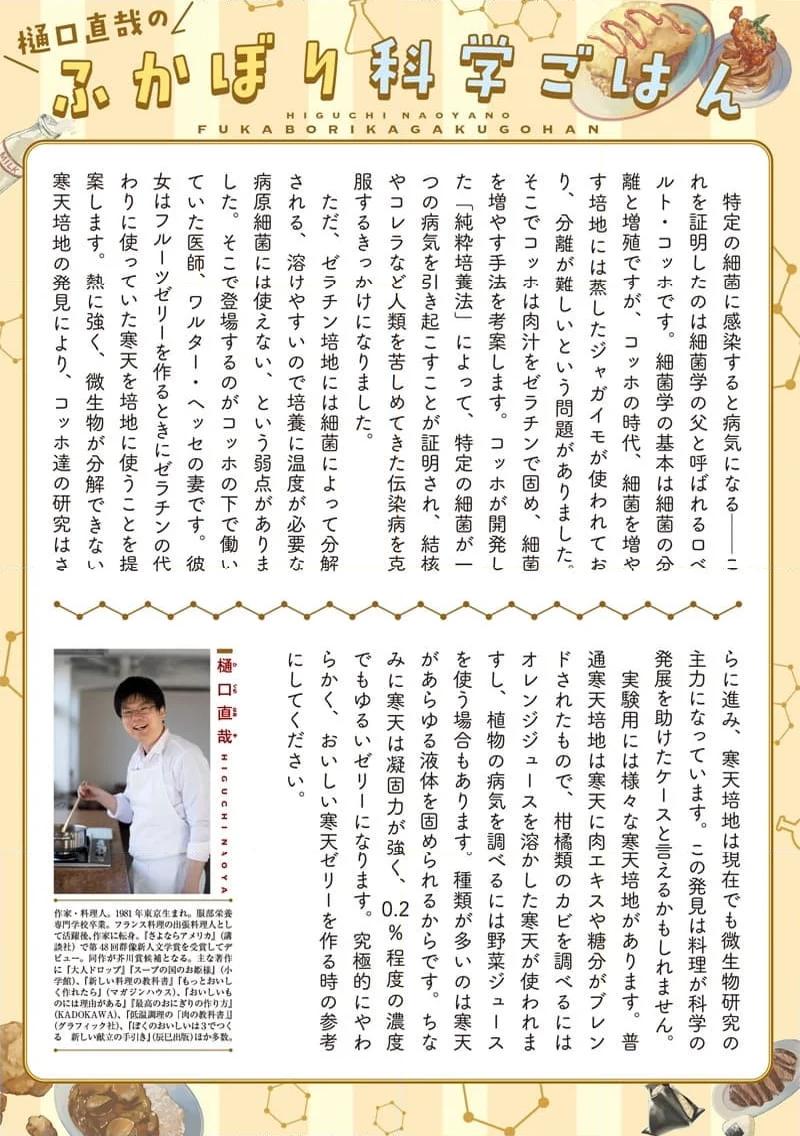 樋口直哉の
ふかぼり科学ごはん
HIGUCHI NAOYANO
FUKABORIKAGAKUGOHAN
MILK
特定の細菌に感染すると病気になる――こ
れを証明したのは細菌学の父と呼ばれるロベ
ルト・コッホです。細菌学の基本は細菌の分
離と増殖ですが、コッホの時代、細菌を増や
す培地には蒸したジャガイモが使われてお
り、分離が難しいという問題がありました。
そこでコッホは肉汁をゼラチンで固め、細菌
を増やす手法を考案します。コッホが開発し
た「純粋培養法」によって、特定の細菌が一
つの病気を引き起こすことが証明され、結核
やコレラなど人類を苦しめてきた伝染病を克
服するきっかけになりました。
ただ、ゼラチン培地には細菌によって分解
される、溶けやすいので培養に温度が必要な
病原細菌には使えない、という弱点がありま
した。そこで登場するのがコッホの下で働い
ていた医師、ワルター・ヘッセの妻です。彼
女はフルーツゼリーを作るときにゼラチンの代
わりに使っていた寒天を培地に使うことを提
案します。熱に強く、微生物が分解できない
寒天培地の発見により、コッホ達の研究はさ
らに進み、寒天培地は現在でも微生物研究の
主力になっています。この発見は料理が科学の
発展を助けたケースと言えるかもしれません。
実験用には様々な寒天培地があります。普
通寒天培地は寒天に肉エキスや糖分がブレン
ドされたもので、柑橘類のカビを調べるには
オレンジジュースを溶かした寒天が使われま
すし、植物の病気を調べるには野菜ジュース
を使う場合もあります。種類が多いのは寒天
があらゆる液体を固められるからです。ちな
みに寒天は凝固力が強く、0.2%程度の濃度
でもゆるいゼリーになります。究極的にやわ
らかく、おいしい寒天ゼリーを作る時の参考
にしてください。
樋口直哉 HIGUCHI NAOYA
ひぐちなおや
作家・料理人。1981年東京生まれ。服部栄養
専門学校卒業。フランス料理の出張料理人とし
て活躍後、作家に転身。『さよならアメリカ』(講
談社)で第48回群像新人文学賞を受賞してデ
ビュー。同作が芥川賞候補となる。主な著作
に『大人ドロップ』『スープの国のお姫様』(小
学館)、『新しい料理の教科書』『もっとおいし
く作れたら』(マガジンハウス)、『おいしいも
のには理由がある』『最高のおにぎりの作り方』
(KADOKAWA)、『低温調理の「肉の教科書」』
(グラフィック社)、『ぼくのおいしいは3でつく
る 新しい献立の手引き』(辰巳出版)ほか多数。